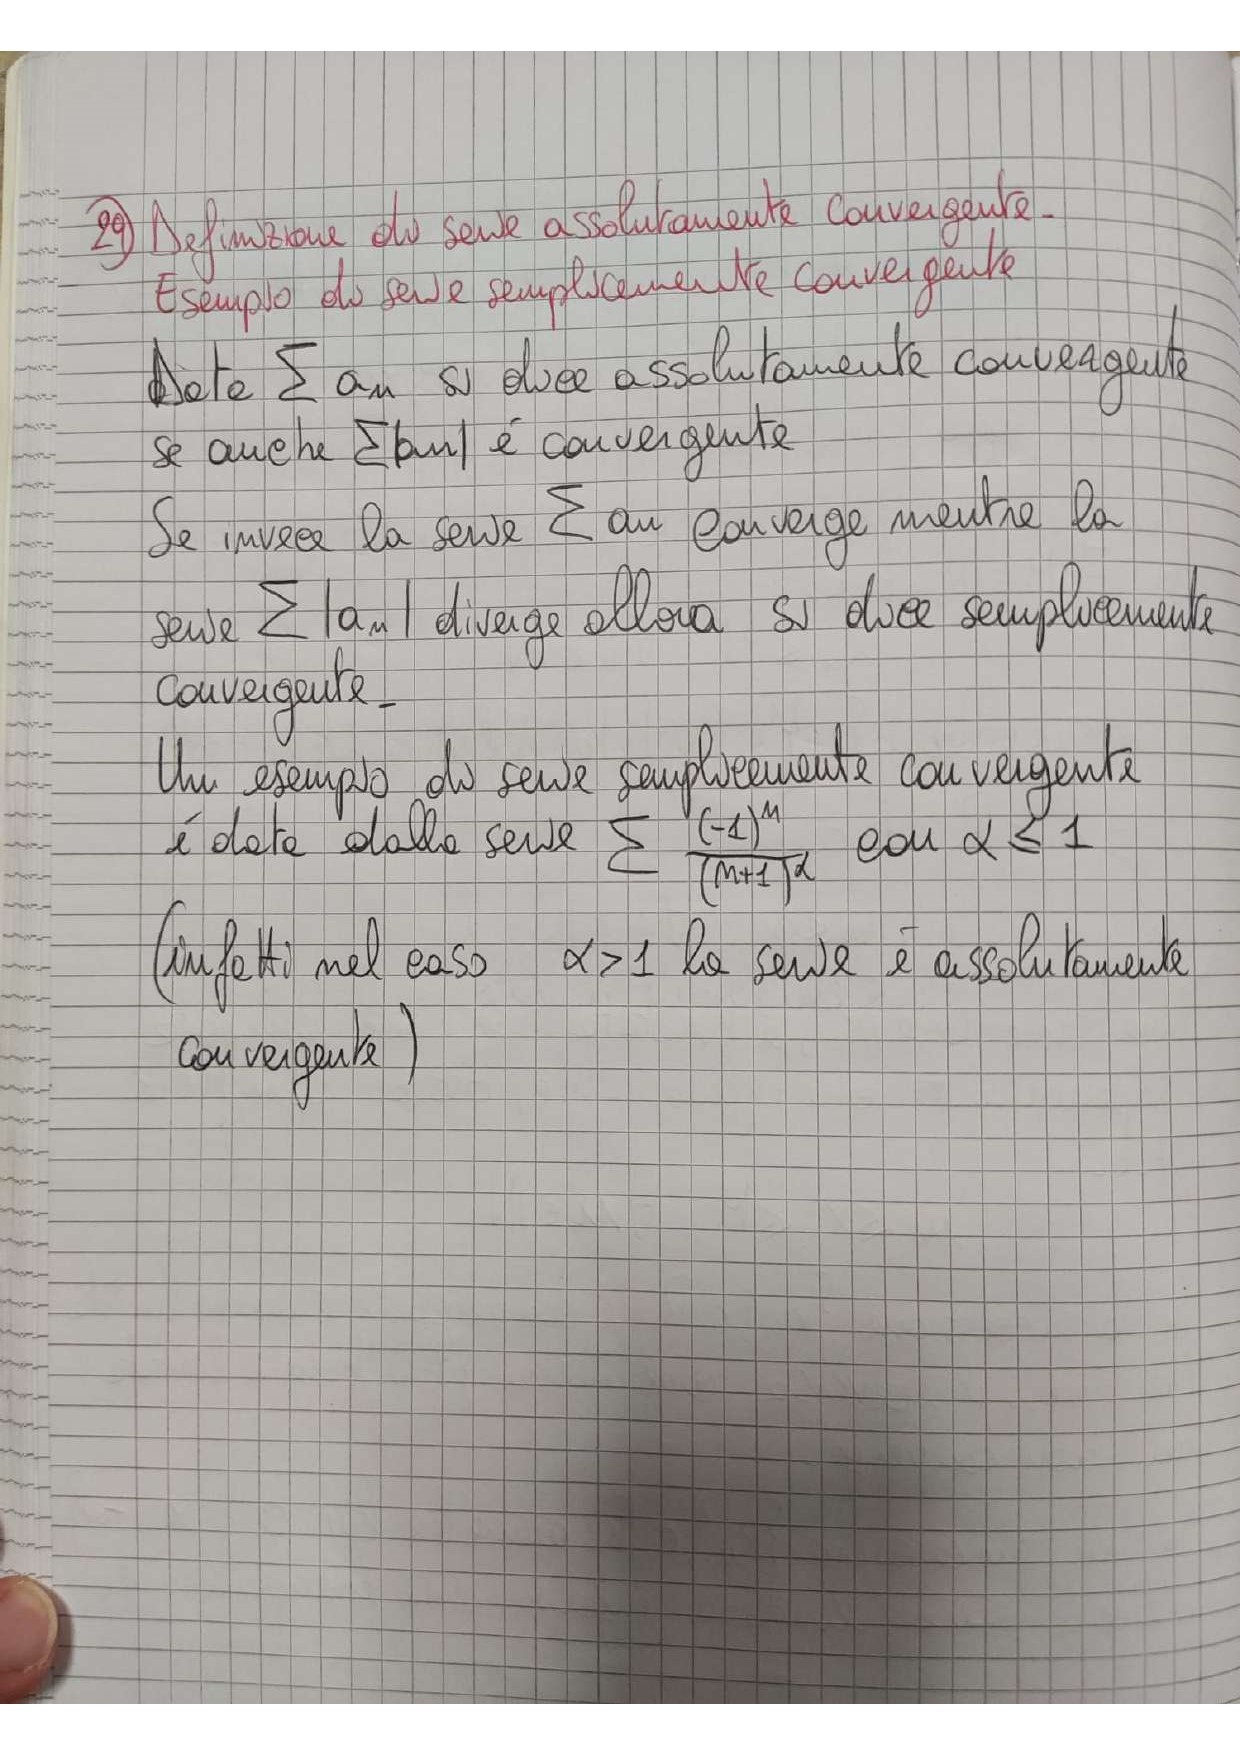 29) Definizione di serie assolutamente convergente.
Esempio di serie semplicemente convergente
Data Σ an si dice assolutamente convergente
se anche Σ|an| é convergente
Se invece la serie Σ an converge mentre la
serie Σ |an| diverge allora si dice semplicemente
convergente.
Un esempio di serie semplicemente convergente
é data dalla serie Σ (-1)^n / (n+1)^α con α ≤ 1
(infatti nel caso α>1 la serie é assolutamente
convergente)